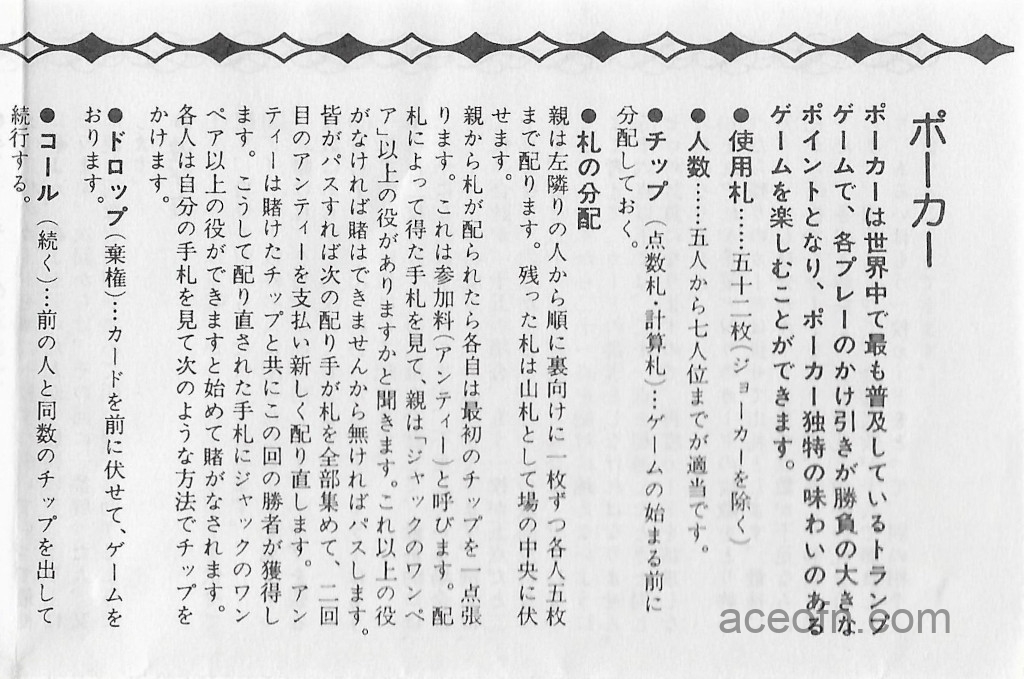 ポーカー
ポーカーは世界中で最も普及しているトランプ
ゲームで、各プレーのかけ引きが勝負の大きな
ポイントとなり、ポーカー独特の味わいのある
ゲームを楽しむことができます。
●使用札……五十二枚(ジョーカーを除く)
●人数……五人から七人位までが適当です。
●チップ(点数札・計算札)…ゲームの始まる前に
分配しておく。
●札の分配
親は左隣りの人から順に裏向けに一枚ずつ各人五枚
まで配ります。残った札は山札として場の中央に伏
せます。
親から札が配られたら各自は最初のチップを一点張
ります。これは参加料(アンティー)と呼びます。配
札によって得た手札を見て、親は「ジャックのワンペ
ア」以上の役がありますかと聞きます。これ以上の役
がなければ賭はできませんから無ければパスします。
皆がパスすれば次の配り手が札を全部集めて、二回
目のアンティーを支払い新しく配り直します。アン
ティーは賭けたチップと共にこの回の勝者が獲得し
ます。こうして配り直された手札にジャックのワン
ペア以上の役ができますと始めて賭がなされます。
各人は自分の手札を見て次のような方法でチップを
かけます。
●ドロップ(棄権)…カードを前に伏せて、ゲームを
おります。
●コール(続く)…前の人と同数のチップを出して
続行する。
aceofn.com